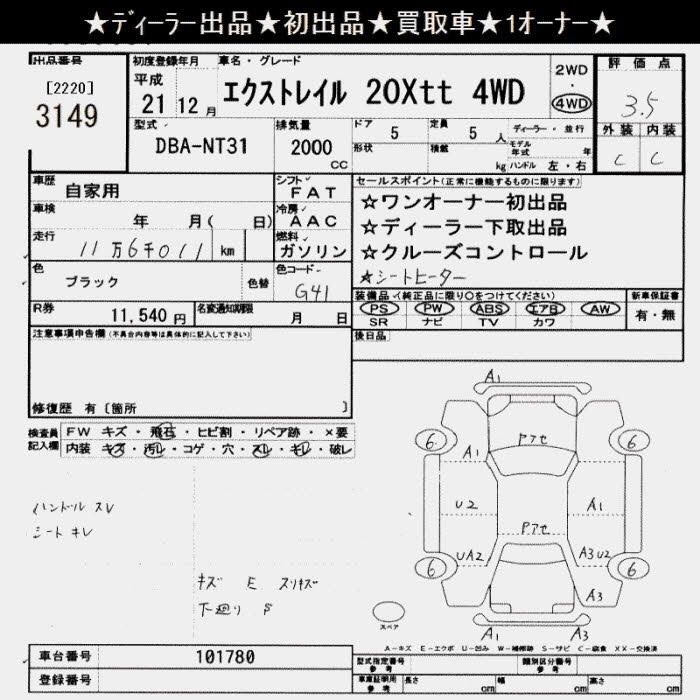 ★ディーラー出品★初出品★買取車★1オーナー★
出品番号
[2220]
3149
初度登録年月
平成
21 12 月
車名・グレード
エクストレイル 20Xtt 4WD
2WD
・
4WD
評価点
3.5
外装 内装
C C
型式
DBA-NT31
排気量
2000
CC
ドア 5
形状
定員 5 人
積載 kg
ディーラー・並行
モデル年式 年
ハンドル 左・右
車歴
自家用
シフト
FAT
車検
年 月( 日)
冷房
AAC
走行
11万6千011 km
燃料
ガソリン
色
ブラック
色替
色コード
G41
R券
11,540 円
名変通知期限
月 日
セールスポイント(正常に機能するものに限ります)
☆ワンオーナー初出品
☆ディーラー下取出品
☆クルーズコントロール
☆シートヒーター
装備品(純正品に限り○をつけてください)
PS PW ABS エアB AW
SR ナビ TV カワ
新車保証書
有・無
後日品
注意事項申告欄(不具合内容等は具体的に記入して下さい)
修復歴 有〔箇所 〕
検査員記入欄
FW キズ・飛石・ヒビ割・リペア跡・×要
内装 キズ・汚レ・コゲ・穴・スレ・キレ・破レ
ハンドル スレ
シート キレ
キズ E スリキズ
下廻り S
A1
6
6
Pアセ
A1
U2
A1
Pアセ
UA2
A3U2
6
6
A3
A1
A3
スペア
A-キズ E-エクボ U-凹み W-補修跡 S-サビ C-腐食 XX-交換済
車台番号
101780
登録番号
型式指定番号
参考
類別区分番号
参考
車庫証明用
参考
長さ cm
幅 cm
高さ cm